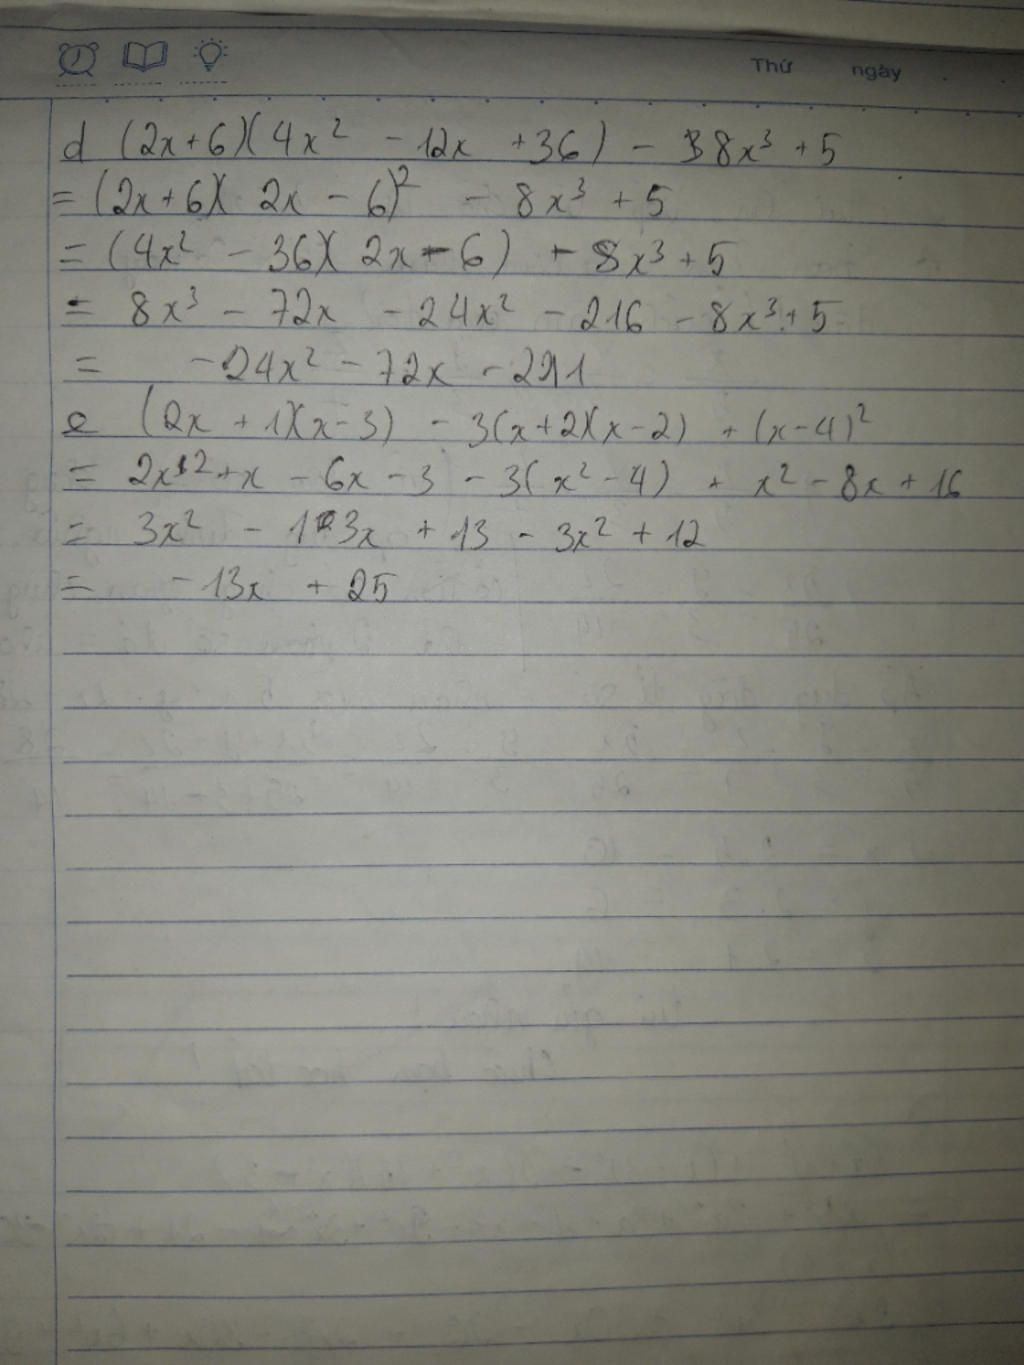 Thứ ngày
d (2x+6)(4x² - 12x + 36) - 8x³ + 5
= (2x+6)(2x - 6)² - 8x³ + 5
= (4x² - 36)(2x - 6) - 8x³ + 5
= 8x³ - 72x - 24x² - 216 - 8x³ + 5
= - 24x² - 72x - 211
e (2x + 1)(x - 3) - 3(x+2)(x - 2) + (x - 4)²
= 2x² + x - 6x - 3 - 3(x² - 4) + x² - 8x + 16
= 3x² - 13x + 13 - 3x² + 12
= - 13x + 25